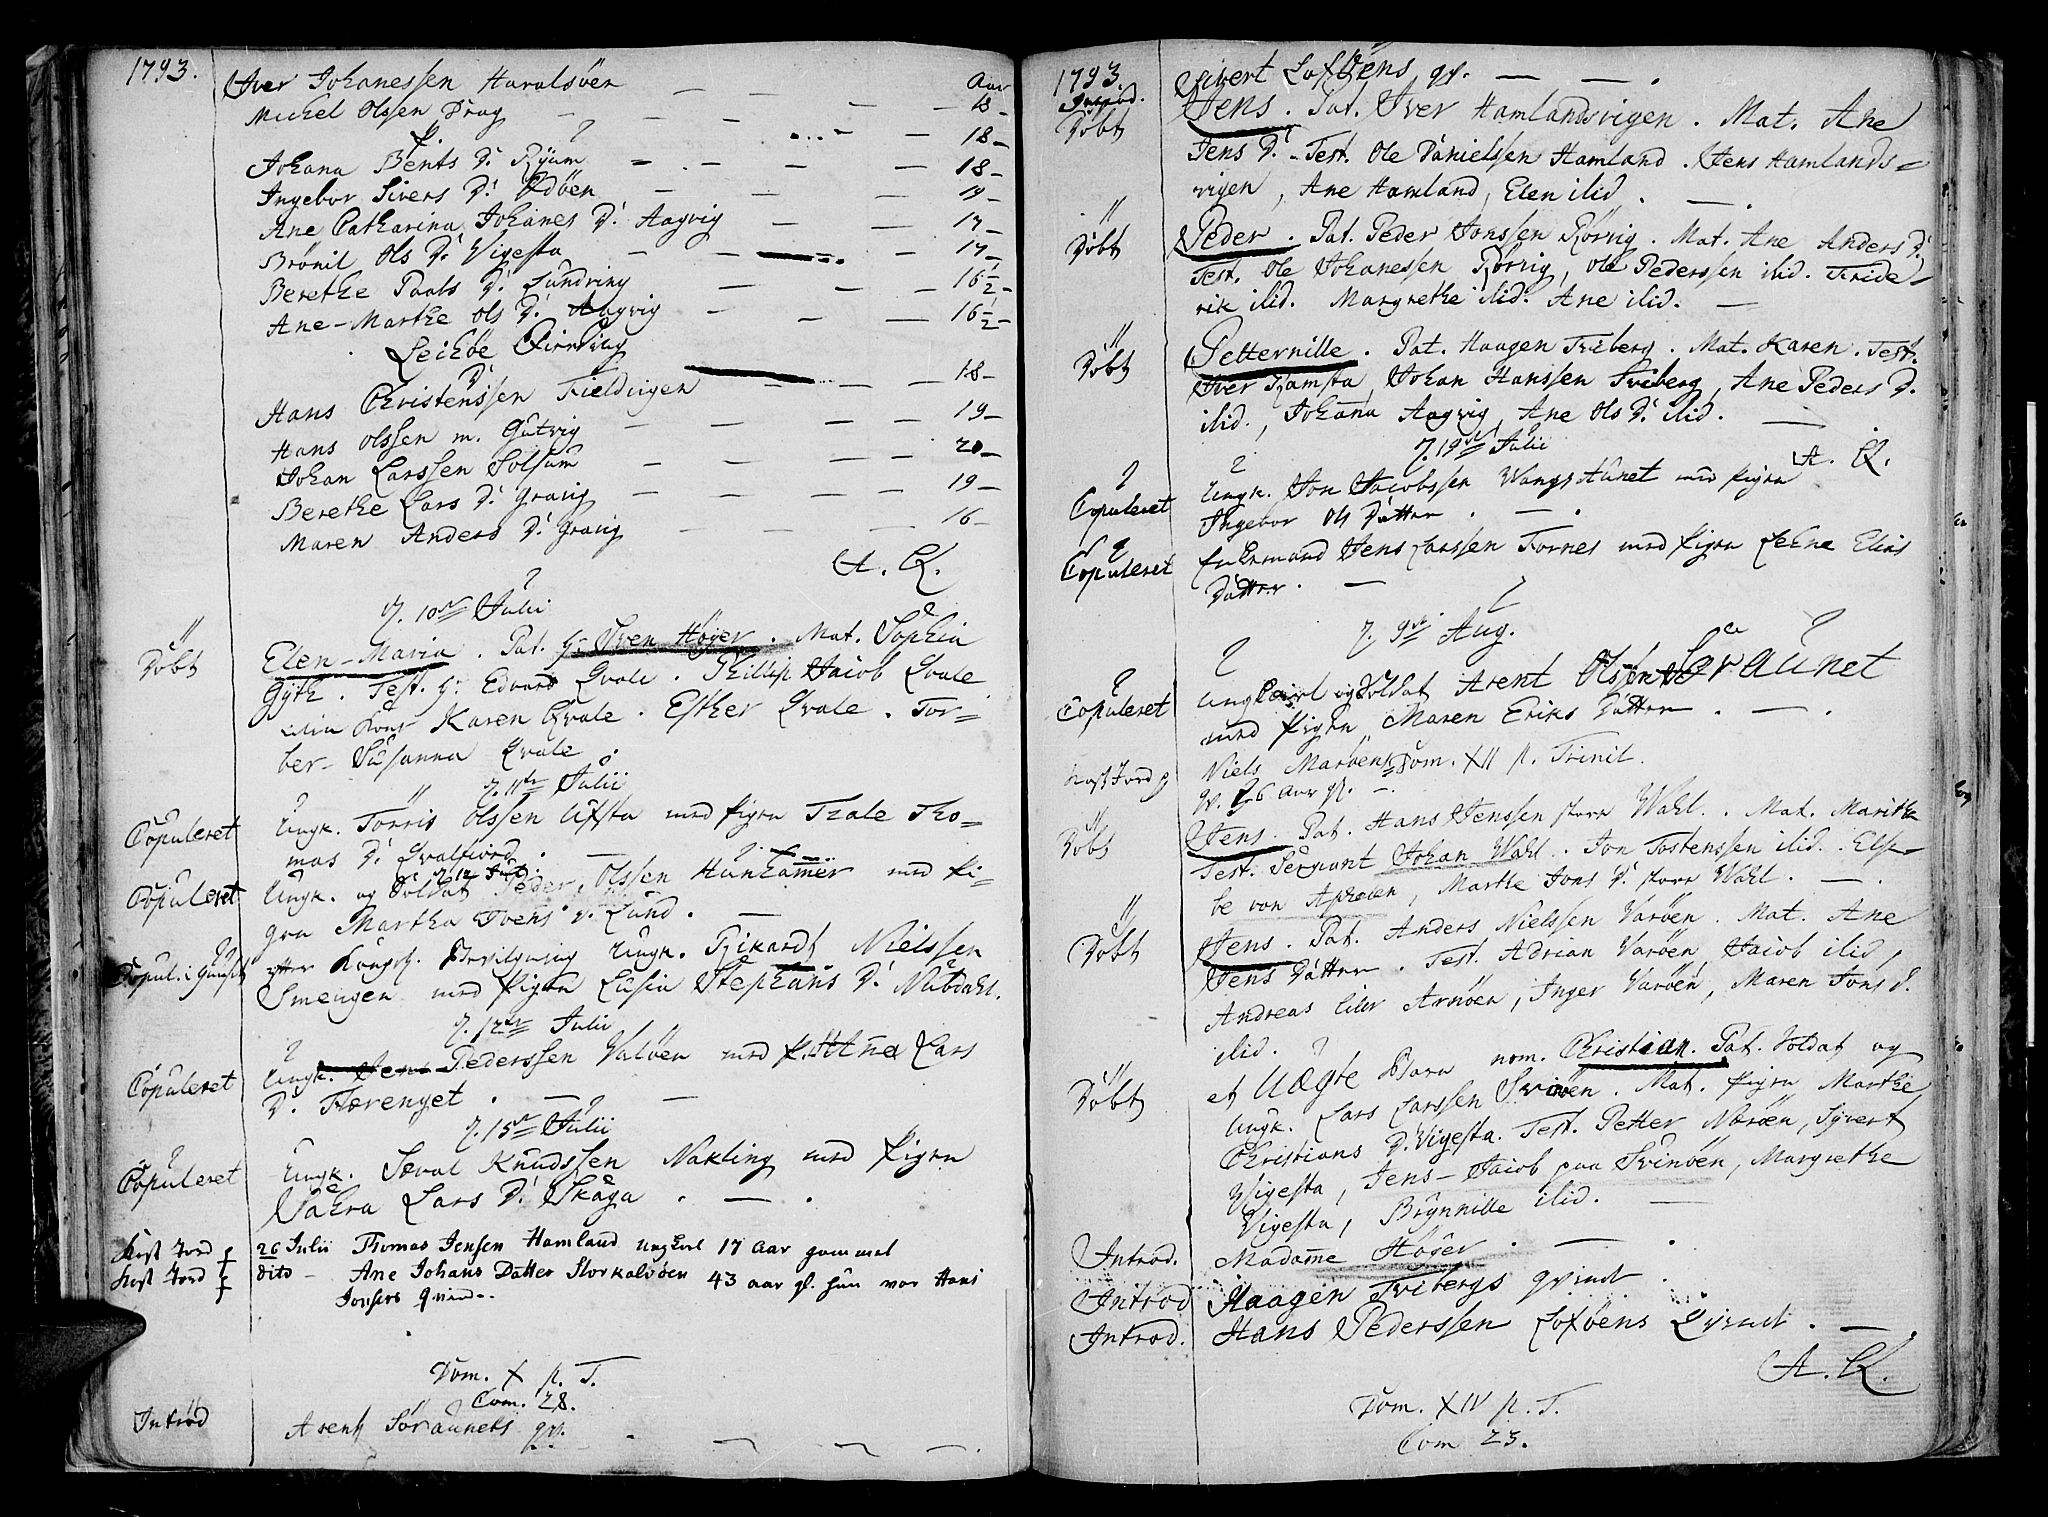 1793.
Iver Johanessen Haralsöen — — — Aar 18 –
Michel Olssen Drag — — — — 18 –
P.
Johana Bents D: Ryüm — . — — 18 –
Ingebor Sivers D: Edöen — — — 19 –
Ane Catharina Johanes D: Aagvig — — 17 –
Brönil Ols D: Vigesta — — — 17 –
Berethe Paals D: Lündring — — — 16 1/2 –
Ane-Marthe Ols D: Aagvig — — — 16 1/2 –
Leiköe
D:
Hans Christenssen Fieldvigen — — — 18 –
Hans Olssen m. Gutvig — — — 19 –
Johan Larssen Solsüm — — — 20 –
Berethe Lars D: Gravig — — — 19 –
Maren Anders D: Gravig — — — 16 –
A. CL.
d. 10de Julii
Döbt
Elen-Maria. Pat. Hr: Sven Höyer. Mat. Sophia
Gyth. Test. Hr: Edvard Qvale. Phillip Jacob Qvale
min Kone Karen Qvale. Esther Qvale. Tor-
ber-Süsanna Qvale.
d. 11te Julii
Copuleret
Ungk. Törris Olssen Ufsta med Pigen Trale Tho-
mas D: Qvalfiord. —
Copuleret
Ungk. og Soldat Peder Olssen Hünhamer med Pi-
gen Martha Ivens D. Lünd. —
Copul. i Huuset
efter Kongel. Bevilgning Ungk. Rikardt Nielssen
Smengen med Pigen Lusia Stephans D: Nübdahl.
d. 12te Julii
Copuleret
Ungk. Jens Pederssen Valöen med P. Ana Lars
D: Flærenget . — —
d. 15de Julii
Copuleret
Ungk. Sæval Knüdssen Nakling med Pigen
Sahra Lars D: Skåga . — .
Kast Jord p 26 Julii Thomas Jensen Hamland ungkarl 17 Aar gammel
Kast Jord p dito – Ane Johans Datter Storkalvöen 43 aar gl. hün var Hans
Jonsens qvinde.
Dom. X p. T.
Com. 28.
Introd
Arent Söraunets qv. — — —
1793.
Introd.
Sivert Loföens qv. — — .
Döbt
Jens. Pat. Iver Hamlandsvigen. Mat. Ane
Jens D: Test. Ole Danielssen Hamland. Jens Hamlands-
vigen, Ane Hamland, Elen ibid. — .
Döbt
Peder. Pat. Peder Jonssen Rörvig. Mat. Ane Anders D:
Test. Ole Johanessen Rörvig, Ole Pederssen ibid. Fride-
rik ibid. Margrethe ibid. Ane ibid. —
Döbt
Petternille. Pat. Haagen Friberg. Mat. Karen. Test.
Iver Ramsta, Johan Hanssen Friberg, Ane Peders D.
ibid., Johana Aagvig, Ane Ols D: ibid. —
d. 19de Julii
A. CL.
Copuleret
Ungk. Jon Jacobssen Wangstünet med Pigen
Ingebor Ols Datter. — .
Copuleret
Enkemand Jens Larssen Fornes med Pigen Lehne Elias
Datter. —
d. 9de Aug.
Copuleret
Ungkarl og Soldat Arent Olssen Söraunet
med Pigen Maren Eriks Datter . — .
Dom. XII p. Trinit.
Kast Jord p
Niels Maröens
qv. 26 Aar gl. –
Döbt
Jens. Pat. Hans Jenssen store Wahl. Mat. Marithe
Test. Sergiant Johan Wahl. Jon Tostenssen ibid. Else-
be von Aphelen, Marthe Jons D: store Wahl. — .
Döbt
Jens. Pat. Anders Nielssen Varöen. Mat. Ane
Jens Datter. Test. Adrian Varöen, Jacob ibid,
Andreas lille Arnöen, Inger Varöen, Maren Jons D.
ibid.
Döbt
et Uægte Barn nom. Christian. Pat. Soldat og
Ungk. Lars Larssen Svinöen. Mat. Pigen Marthe
Christians D: Vigesta. Test. Petter Næröen, Syvert
Vigesta, Jens-Jacob paa Svinöen, Margrethe
Vigesta, Brynnille ibid. —
Introd.
Madame Höyer . — .
Introd
Haagen Fribergs qvinde .
Introd.
Hans Pederssen Loföens Qvinde . — .
A. CL.
Dom. XIV p. T.
Com 23.